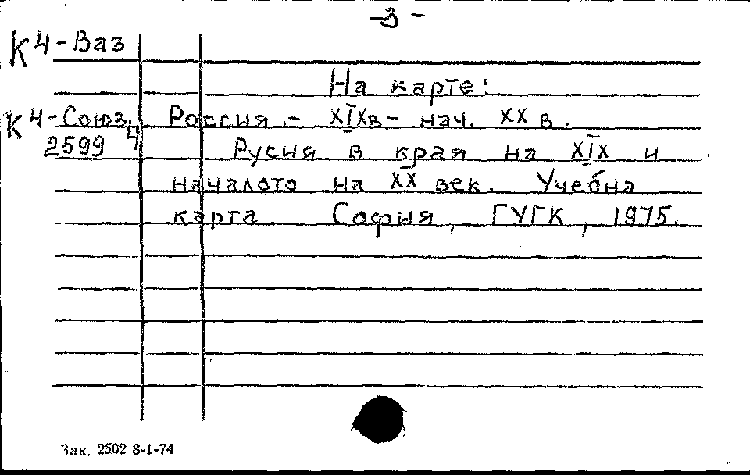 -3-
К4-Ваз
На карте:
К4-Союз, Россия - XIXв - нач. XX в.
2599 4 Русия в края на XIX и
началото на XX век. Учебна
карта София, ГУГК, 1975.
Зак. 2502 8-1-74